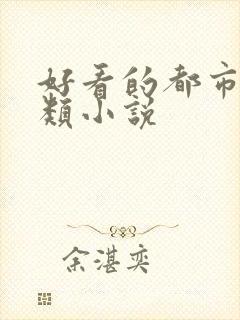 好看的都市
類小說
余湛奕